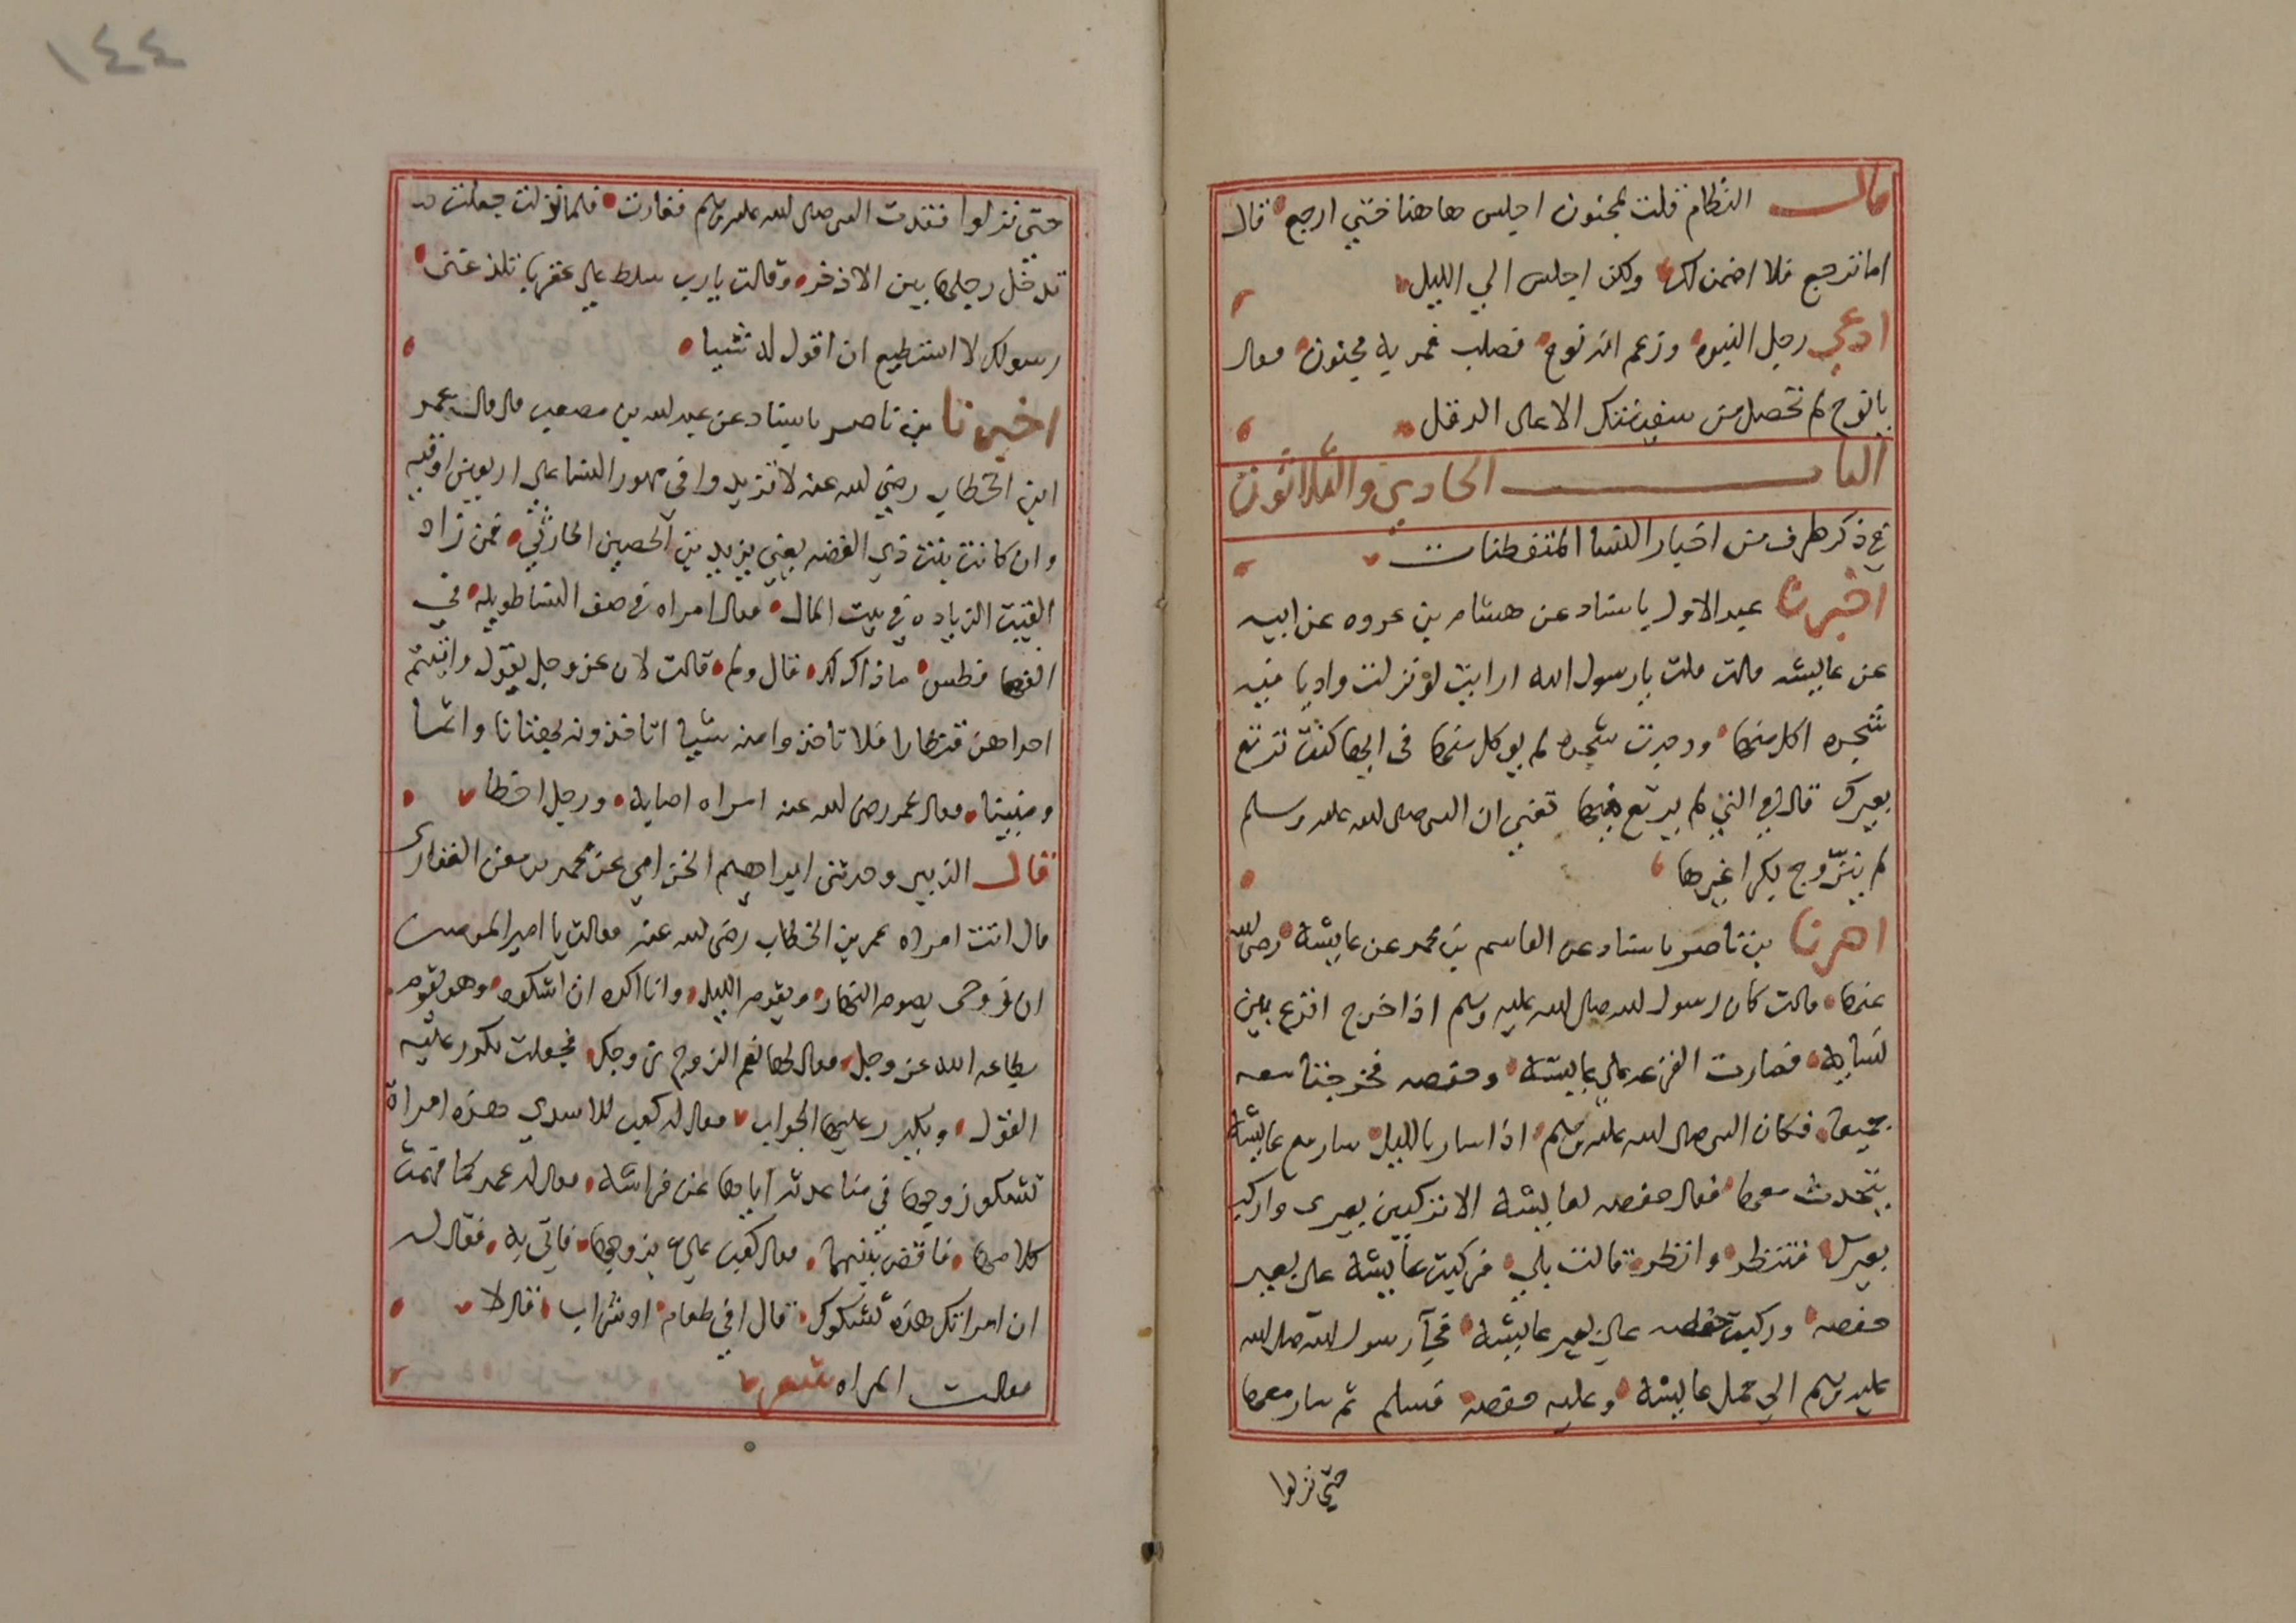 قال النظام قلت لمجنون اجلس هاهنا حتي ارجع قال
اما ترجع فلا اضمن لك ولكن اجلس الي الليل
ادعي رجل النبوه وزعم انه نوح فصلب فمر به مجنون فقال
يا نوح لم تحصل من سفينتك الا على الدقل
الباب الحادي والثلاثون
في ذكر طرف من اخبار النسا المتفطنات
اخبرنا عبد الاول باسناد عن هشام بن عروه عن ابيه
عن عايشه قالت قلت يا رسول الله ارايت لو نزلت واديا فيه
شجره اكل منها ووجدت شجره لم يوكل منها في ايها كنت ترتع
بعيرك قال في التي لم يرتع فيها تعني ان النبي صلى الله عليه وسلم
لم يتزوج بكرا غيرها
اخبرنا بن ناصر باسناد عن القاسم بن محمد عن عايشة رضي الله
عنها قالت كان رسول الله صلى الله عليه وسلم اذا خرج اقرع بين
نسايه فصارت القرعه على عايشة وحفصه فخرجتا معه
جميعا فكان النبي صلى الله عليه وسلم اذا سار بالليل سار مع عايشة
يتحدث معها فقال حفصه لعايشة الا تركبين بعيري واركب
بعيرك فتنظر وانظر قالت بلي فركبت عايشة على بعير
حفصه وركبت حفصه على بعير عايشة فجآ رسول الله صلى الله
عليه وسلم الي جمل عايشة وعليه حفصه فسلم ثم سار معها
حتي نزلوا
١٤٤
حتي نزلوا فتقدت النبي صلى الله عليه وسلم فغارت فلما نزلت جعلت
تدخل رجلها بين الاذخر وقالت يا رب سلط علي عقربا تلدغني
رسولك لا استطيع ان اقول له شيا
اخبرنا بن ناصر باسناد عن عبد الله بن مصعب قال قال عمر
ابن الخطاب رضي الله عنه لا تزيدوا في مهور النسا على اربعين اوقيه
وان كانت بنت ذي الغصه يعني يزيد بن الحصين الحارثي فمن زاد
القيت الزياده في بيت المال فقال امراه في صف النسا طويله في
انفها فطس ما ذاك لك قال ولم قالت لان عز وجل يقول واتيتم
احداهن قنطارا فلا تاخذوا منه شيا اتاخذونه بهتانا واثما
ومبينا فقال عمر رضي الله عنه امراه اصابه ورجل اخطا
قال الزبير وحدثني ابراهيم الخزامي عن محمد بن معن الغفاري
قال اتت امراه عمر بن الخطاب رضي الله عنه فقالت يا امير المومنين
ان زوجي يصوم النهار ويقوم الليل وانا اكره ان اشكوه وهو يقوم
بطاعه الله عز وجل فقال لها نعم الزوج زوجك فجعلت تكرر عليه
القول ويكرر عليها الجواب فقال له كعب الاسدي هذه امراة
تشكو زوجها في مباعدته اياها عن فراشه فقال له عمر كما فهمت
كلامها فاقض بينهما فقال كعب علي بزوجها فاتي به فقال له
ان امراتك هذه تشكوك قال افي طعام او شراب قال لا
فقالت المراه شعر